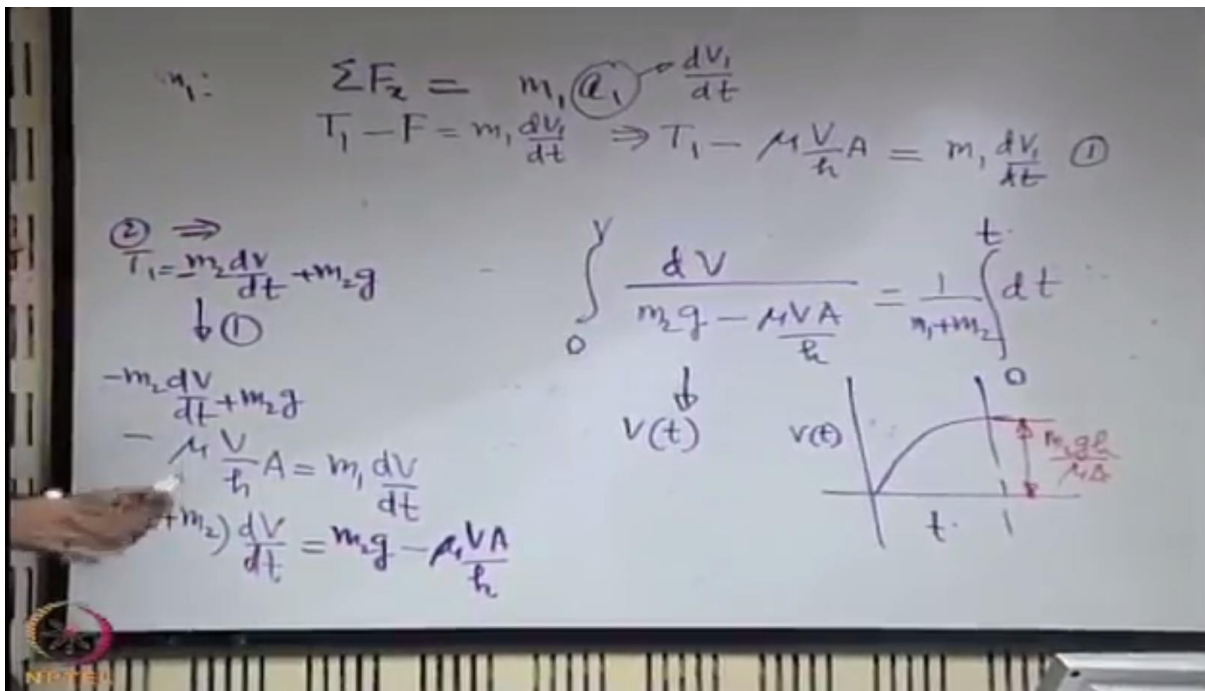 m₁: ΣFₓ = m₁ a₁ → dV₁/dt
T₁ - F = m₁ dV₁/dt ⇒ T₁ - μ V/h A = m₁ dV₁/dt ①
② ⇒
T₁ = -m₂ dV/dt + m₂g
↓ ①
-m₂ dV/dt + m₂g
- μ V/h A = m₁ dV/dt
+m₂) dV/dt = m₂g - μ VA/h
∫₀^V dV / (m₂g - μVA/h) = 1/(m₁+m₂) ∫₀^t dt
↓
V(t)
V(t)
t
m₂gh/μA
NPTEL